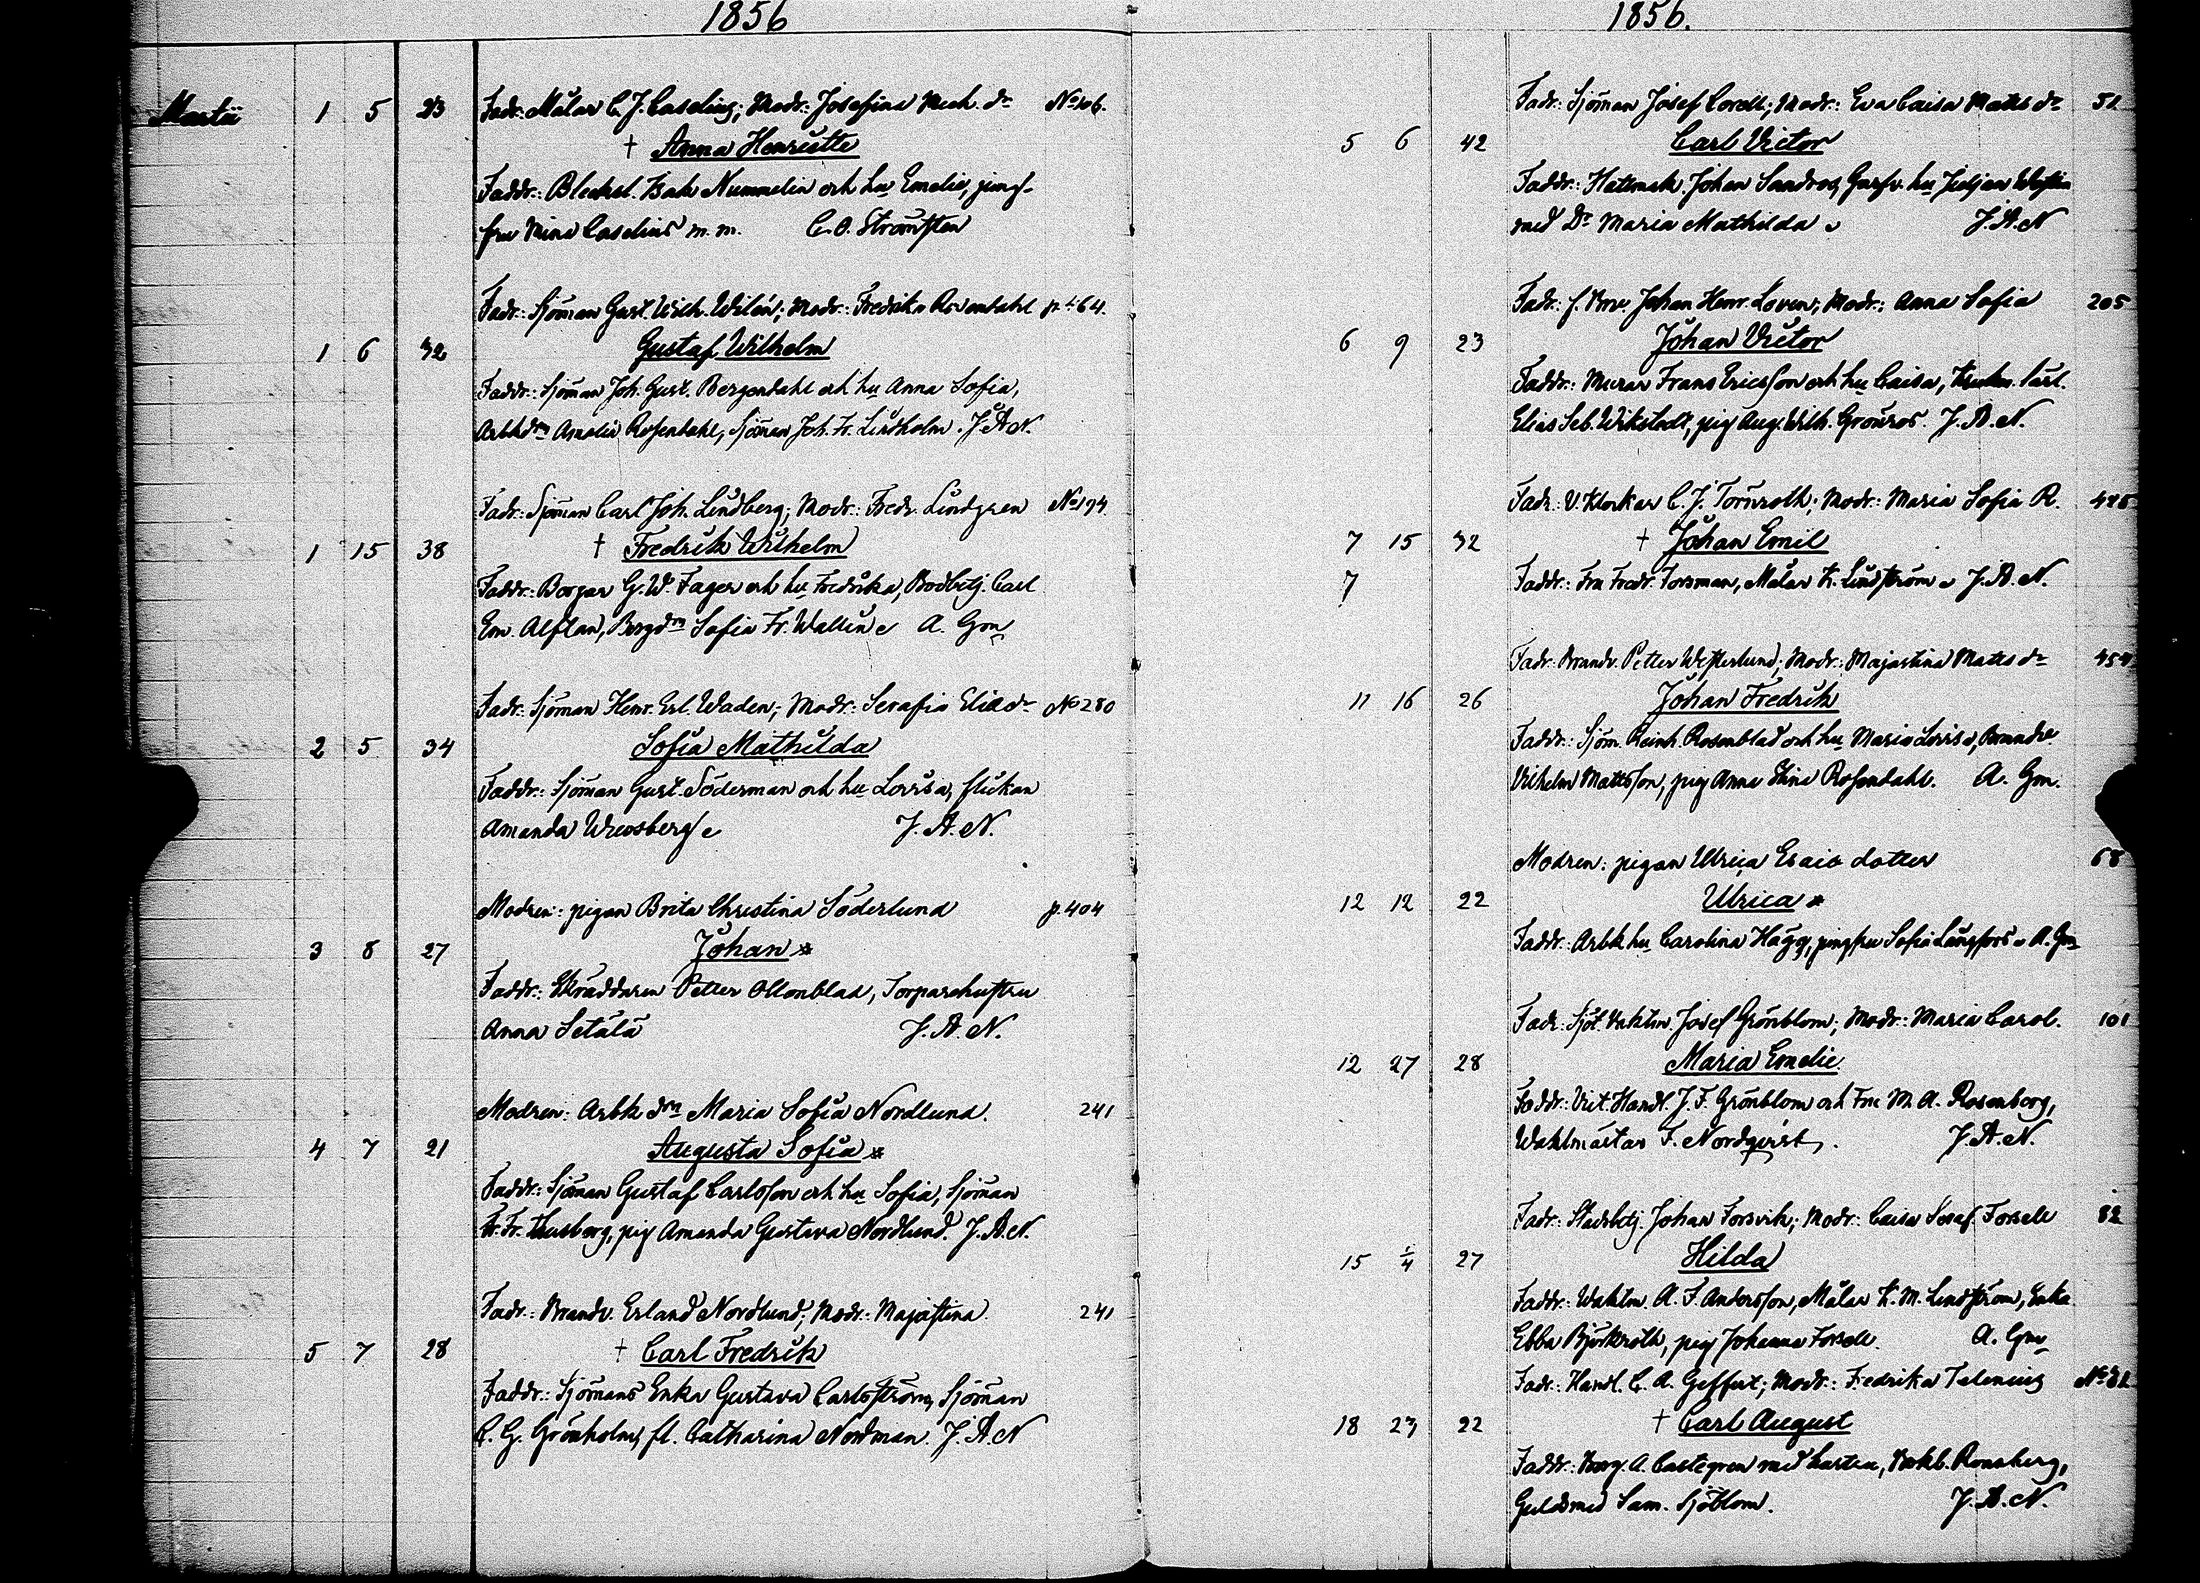 1856
Martii 1 5 23 Fadr: Målar C. J. Caselius; Modr: Josefina Mich. dr No 106.
† Anna Henriette
Faddr: Blecksl. Isak Nummelin och hu Emelie, jung-
fru Mina Caselius m. m. C. O. Strömsten
Fadr: Sjöman Gust. Wilh. Wilén; Modr: Fredrika Rosendahl p. 464.
1 6 32 Gustaf Wilhelm
Faddr: Sjöman Joh. Gust. Bergendahl och hu Anna Sofia,
Arbkdrn Amalia Rosendahl, Sjöman Joh. Fr. Lindholm. J. A. N.
Fadr: Sjöman Carl Joh. Lindberg; Modr: Fredr. Lindgren No 194
1 15 38 † Fredrik Wilhelm
Faddr: Borgar G. W. Fager och hu Fredrika, Bodbetj. Carl
Em. Alftan, Borgdrn Sofia Fr. Wallin A. Gm
Fadr: Sjöman Henr. Erl. Waden; Modr: Serafia Eliædr No 280
2 5 34 Sofia Mathilda
Faddr: Sjöman Gust. Söderman och hu Lovisa, flickan
Amanda J. A. N.
Modren: pigan Brita Christina Söderlund p. 404
3 8 27 Johan *
Faddr: Skräddaren Petter Ollonblad, Torparehustru
Anna Setälä J. A. N.
Modren: Arbk drn Maria Sofia Nordlund. 241
4 7 21 Augusta Sofia *
Faddr: Sjöman Gustaf Carlsson och hu Sofia, Sjöman
Fr. Thusberg, pig Amanda Gustava Nordlund. J. A. N.
Fadr: Brandv. Erland Nordlund; Modr: Majastina 241
5 7 28 † Carl Fredrik
Faddr: Sjömans Enka Gustava Carlsström, Sjöman
C. G. Grönholm, fl. Catharina Nordman. J. A. N
1856.
Fadr: Sjöman Josef Corell; Modr: Eva Caisa Mats dr 51
5 6 42 Carl Victor
Faddr: Hattmak. Johan Sandros, hu Westin
med Dr Maria Mathilda J. A. N
Fadr: f. Johan Henr. Loven; Modr: Anna Sofia 205
6 9 23 Johan Victor
Faddr: Murar Frans Ericsson och hu Caisa,
Elias Seb. Wikstedt, pig Aug. Wilh. Grönros. J. A. N.
Fadr: V. Klockar C. J. Törnroth; Modr: Maria Sofia R.
7 15 32 † Johan Emil
7 Faddr: Fru Fredr. Forsman, Målar K. Lindström J. A. N.
Fadr: Brandv. Petter Westerlund; Modr: Majastina Mats dr
11 16 26 Johan Fredrik
Faddr: Sjöm. Reinh. Rosenblad och hu Maria Lovisa, Brandv.
Vilhelm Mattsson, pig Anna Stina Rosendahl. A. Gm.
Modren: pigan Ulrica Esaiæ dotter 68
12 12 22 Ulrica *
Faddr: Arbk hu Carolina Hägg, jungfru Sofia Långfors A. Gm
Fadr: Sjöt. Vaktm. Josef Grönblom; Modr: Maria Carol. 101
12 27 28 Maria Emelie
Faddr: Vict. Handl. J. F. Grönblom och Fru M. A. Rosenborg,
Waktmästar F. Nordqvist. J. A. N.
Fadr: Stadsbetj. Johan Forsvik; Modr: Caisa Seraf. Forsell 82
15 1/4 27 Hilda
Faddr: Waktm. A. F. Andersson, Målar K. M. Lindström, Enka
Ebba Björkroth, pig Johanna Forsell. A. Gm
Fadr: Handl. C. A. Geffert; Modr: Fredrika Telenius
18 23 22 † Carl August
Faddr: Borg. A. Castegren med hustru, Bokb. Ronsberg,
Guldsmed Sam. Sjöblom. J. A. N.